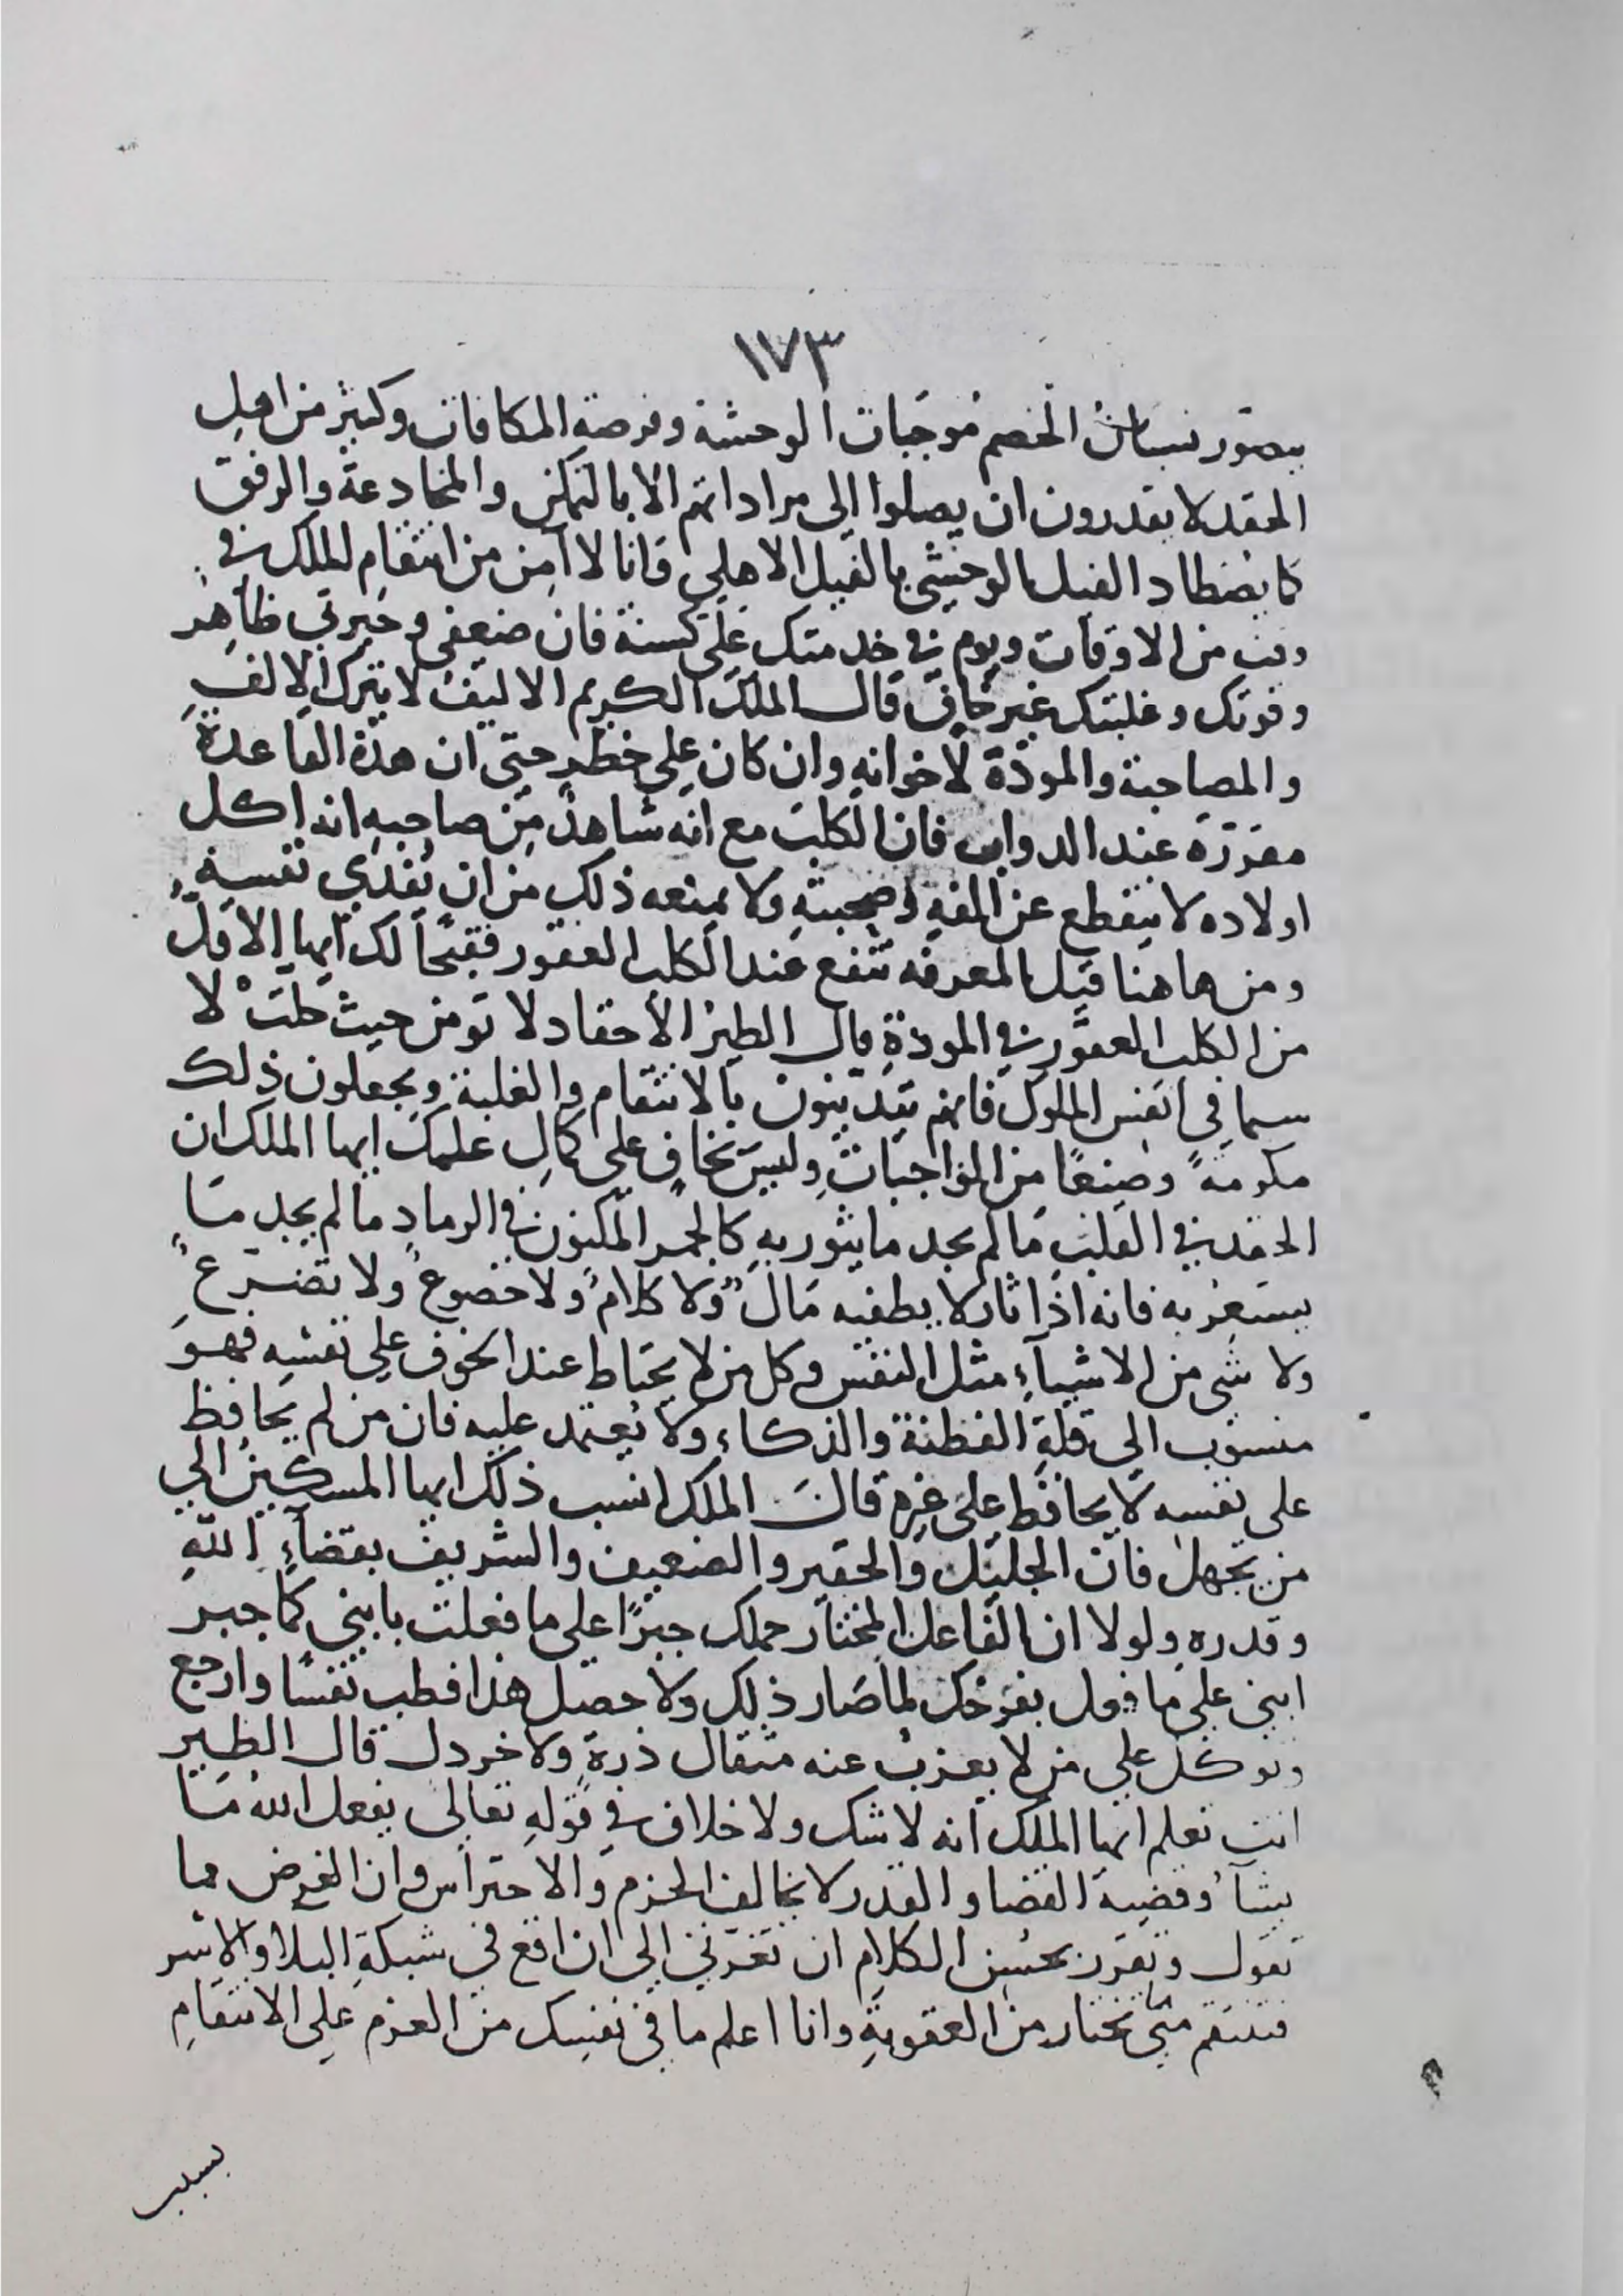 ١٧٣
يتصور نسيان الخصم موجبات الوحشة وفرصة المكافات وكثير من اهل
الحقد لا يقدرون ان يصلوا الى مراداتهم الا بالتمكن والمخادعة والرفق
كا يصطاد الفيل الوحشي بالفيل الاهلي فانا لا آمن من انتقام الملك في
وقت من الاوقات ويوم في خدمتك علي كسنة فان ضعفى وحيرتي ظاهر
وقوتك وغلبتك غير خاف قال الملك الكريم الاليف لا يترك الالف
والمصاحبة والمودة لاخوانه وان كان على خطر حتى ان هذه القاعدة
مقررة عند الدواب فان الكلب مع انه شاهد من صاحبه انه اكل
اولاده لا ينقطع عن الفه وصحبته ولا يمنعه ذلك من ان يفدي نفسه
ومن هاهنا قيل المعرفه تنفع عند الكلب العقور فقبحا لك ايها الاقل
من الكلب العقور في المودة قال الطير الأحقاد لا تومن حيث حلت لا
سيما في انفس الملوك فانهم يتدينون بالانتقام والغلبة ويجعلون ذلك
مكرمةً وصنعًا من الواجبات وليس بخاف على كمال علمك ايها الملك ان
الحقد في القلب مالم يجد ما يثور به كالجمر المكنون في الرماد مالم يجد ما
يستعر به فانه اذا ثار لا يطفيه مال ولا كلام ولا خضوع ولا تضرع
ولا شي من الاشيآء مثل النفس وكل من لا يحتاط عند الخوف على نفسه فهو
منسوب الى قلة الفطنة والذكاء ولا يعتمد عليه فان من لم يحافظ
على نفسه لا يحافظ على غيره قال الملك انسب ذلك ايها المسكين الي
من يجهل فان الجليل والحقير والضعيف والشريف بقضآء الله
وقدره ولولا ان الفاعل المختار حملك جبرًا على ما فعلت بابني كما جبر
ابني على ما فعل بفرخك لما صار ذلك ولا حصل هذا فطب نفسًا وارجع
وتوكل علي من لا يعزب عنه مثقال ذرة ولا خردل قال الطير
انت تعلم ايها الملك انه لا شك ولا خلاف في قوله تعالى يفعل الله ما
يشآ وقضية القضا والقدر لا تخالف الحزم والاحتراس وان الغرض مما
تقول وتقرر بحسن الكلام ان تغرني الى ان اقع في شبكة البلا والاسر
فتنتقم مني بمختار من العقوبة وانا اعلم ما في نفسك من العزم على الانتقام